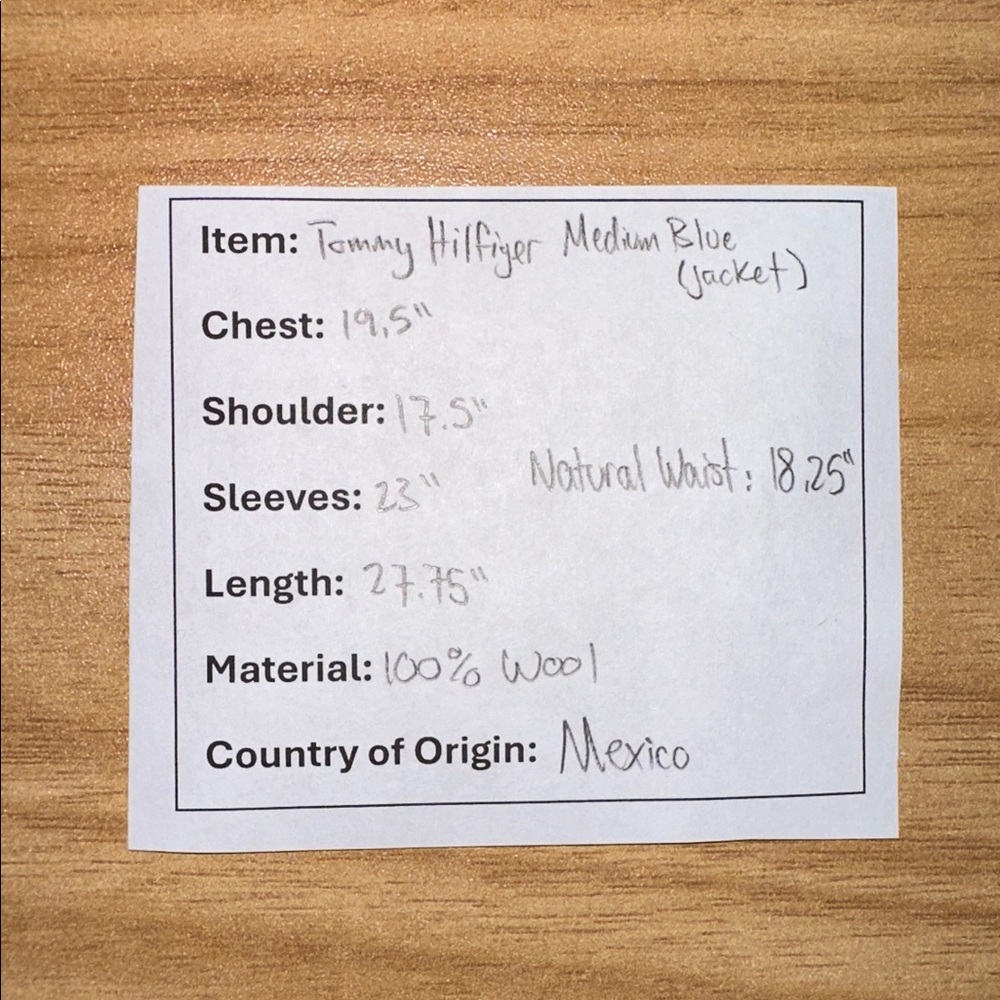 Item: Tommy Hilfiger Medium Blue
(jacket)
Chest: 19.5"
Shoulder: 17.5"
Natural Waist: 18.25"
Sleeves: 23"
Length: 27.75"
Material: 100% Wool
Country of Origin: Mexico